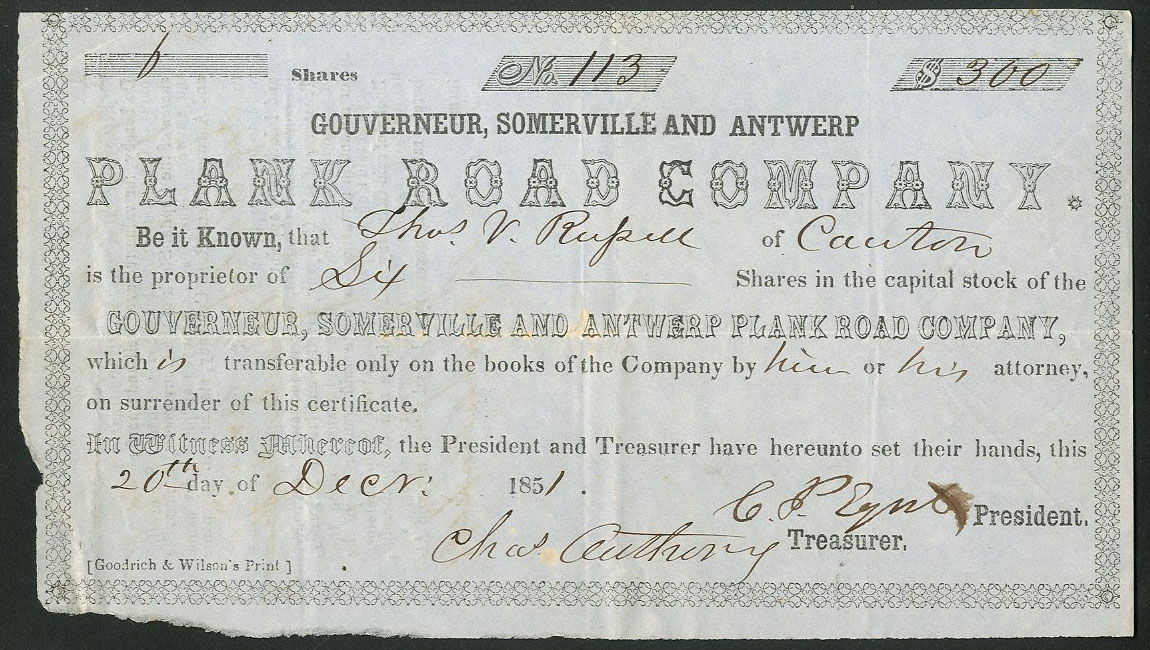 6 Shares No. 113 $ 300
GOUVERNEUR, SOMERVILLE AND ANTWERP
PLANK ROAD COMPANY.
Be it Known, that Thos. V. Russell of Canton
is the proprietor of Six Shares in the capital stock of the
GOUVERNEUR, SOMERVILLE AND ANTWERP PLANK ROAD COMPANY,
which is transferable only on the books of the Company by him or his attorney,
on surrender of this certificate.
In Witness Whereof, the President and Treasurer have hereunto set their hands, this
20th day of Decr. 1851.
C. P. President.
Chas. Anthony Treasurer.
[Goodrich & Wilson's Print]